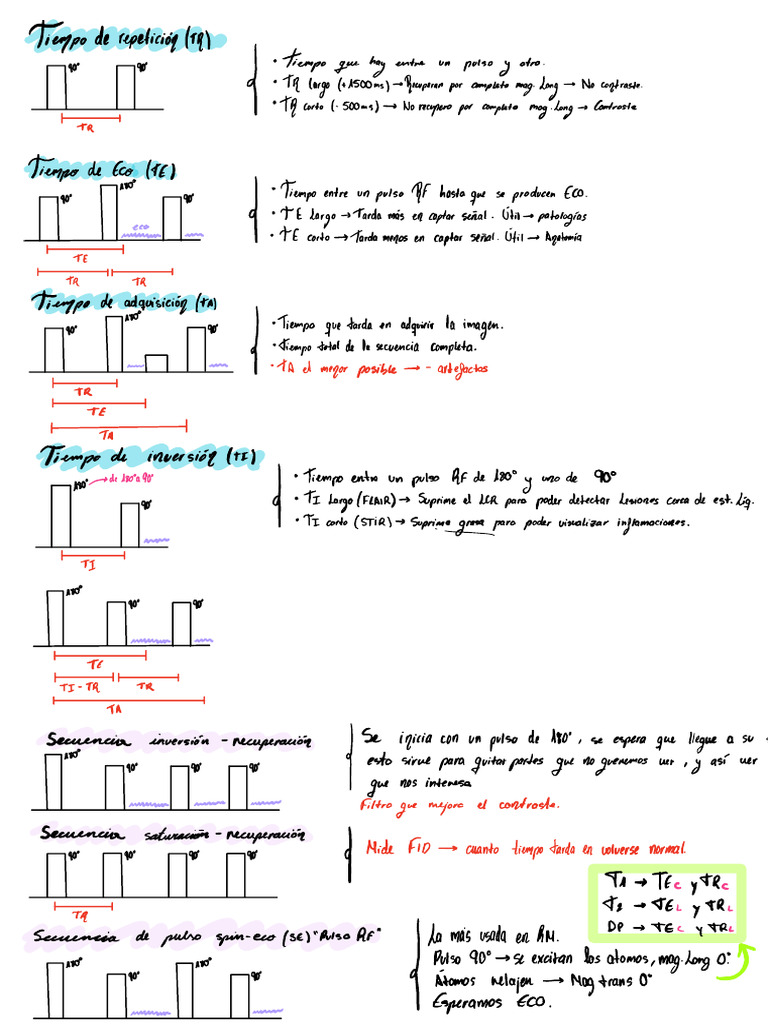 Tiempo de repetición (TR)
90° 90°
TR
• Tiempo que hay entre un pulso y otro.
• TR largo (+1500ms) → Recuperan por completo mag. Long → No contraste.
• TR corto (-500ms) → No recupero por completo mag. Long → Contraste
Tiempo de Eco (TE)
90° 180° 90°
eco
TE
TR TR
• Tiempo entre un pulso RF hasta que se producen ECO.
• TE Largo → Tarda más en captar señal. Útil → patologías
• TE corto → Tarda menos en captar señal. Útil → Anatomía
Tiempo de adquisición (TA)
90° 180° 90°
TR
TE
TA
• Tiempo que tarda en adquirir la imagen.
• Tiempo total de la secuencia completa.
• TA el menor posible → - artefactos
Tiempo de inversión (TI)
180° → de 180° a 90°
90°
TI
• Tiempo entre un pulso RF de 180° y uno de 90°
• TI Largo (FLAIR) → Suprime el LCR para poder detectar Lesiones cerca de est. Liq.
• TI corto (STIR) → Suprime grasa para poder visualizar inflamaciones.
180° 90° 90°
TE
TI - TR TR
TA
Secuencia inversión - recuperación
180° 90° 90° 90°
Se inicia con un pulso de 180°, se espera que llegue a su
esto sirve para quitar partes que no queremos ver, y así ver
que nos interesa
Filtro que mejora el contraste.
Secuencia saturación - recuperación
90° 90° 90° 90°
TR
Mide FID → cuanto tiempo tarda en volverse normal.
T1 → TE C y TR C
T2 → TE L y TR L
DP → TE C y TR L
Secuencia de pulso spin-eco (SE) "Pulso RF"
180° 90° 180° 90°
La más usada en RM.
Pulso 90° → se excitan los átomos, mag. Long 0°
Átomos relajen → Mag trans 0°
Esperamos ECO.